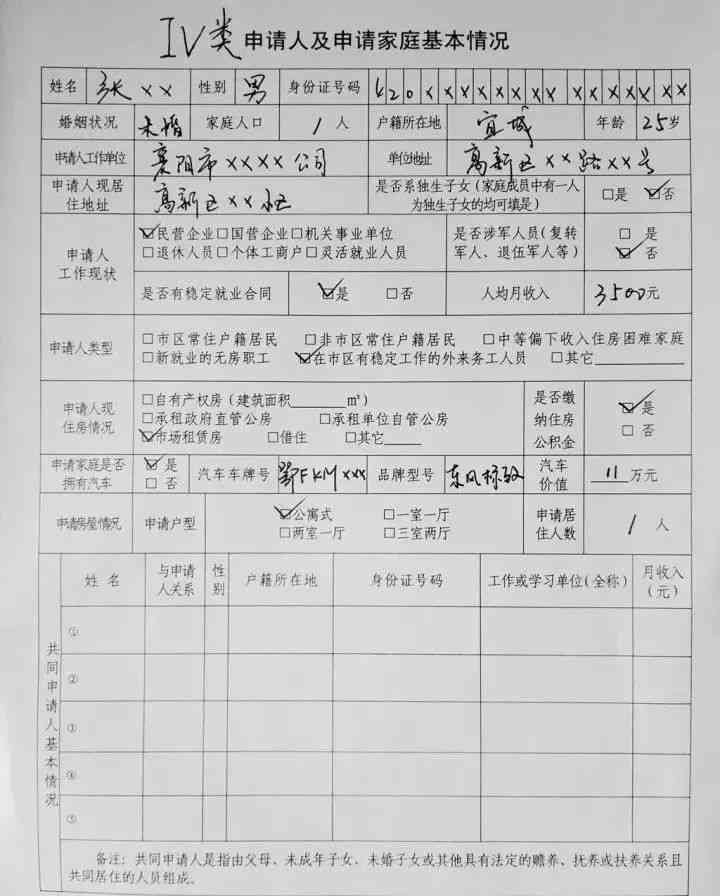 IV类 申请人及申请家庭基本情况
姓名 张×× 性别 男 身份证号码 420×××××××××××××××
婚姻状况 未婚 家庭人口 1 人 户籍所在地 宜城 年龄 25岁
申请人工作单位 襄阳市××××公司 单位地址 高新区××路××号
申请人现居住地址 高新区××小区 是否系独生子女（家庭成员中有一人为独生子女的均可填是） □是 ☑否
申请人工作现状 ☑民营企业□国营企业□机关事业单位
□退休人员□个体工商户□灵活就业人员
是否涉军人员（复转军人、退伍军人等） □ 是
☑ 否
是否有稳定就业合同 ☑是 □否 人均月收入 3500元
申请人类型 □市区常住户籍居民 □非市区常住户籍居民 □中等偏下收入住房困难家庭
□新就业的无房职工 ☑在市区有稳定工作的外来务工人员 □其它
申请人现住房情况 □自有产权房（建筑面积______m²）
□承租政府直管公房 □承租单位自管公房
☑市场租赁房 □借住 □其它
是否缴纳住房公积金 ☑ 是
□ 否
申请家庭是否拥有汽车 ☑ 是
□ 否
汽车车牌号 鄂FKM××× 品牌型号 东风标致 汽车价值 11 万元
申请房屋情况 申请户型 ☑公寓式 □一室一厅
□两室一厅 □三室两厅
申请居住人数 1 人
共同申请人基本情况
姓 名 与申请人关系 性别 户籍所在地 身份证号码 工作或学习单位（全称） 月收入（元）
①
②
③
④
⑤
备注：共同申请人是指由父母、未成年子女、未婚子女或其他具有法定的赡养、抚养或扶养关系且
共同居住的人员组成。